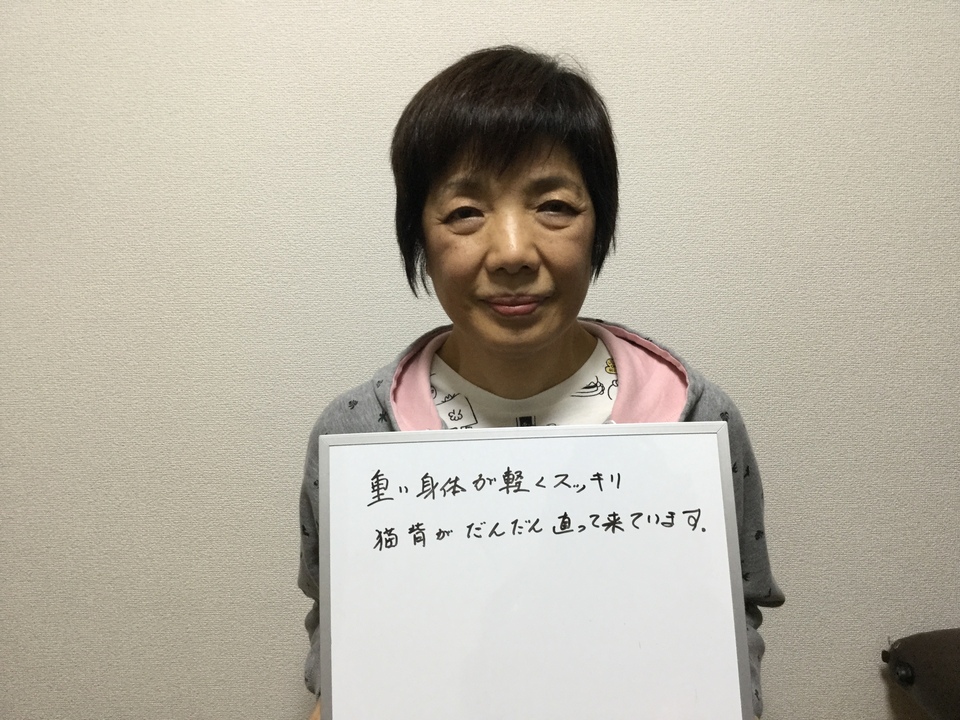 重い身体が軽くスッキリ
猫背がだんだん直って来ています。